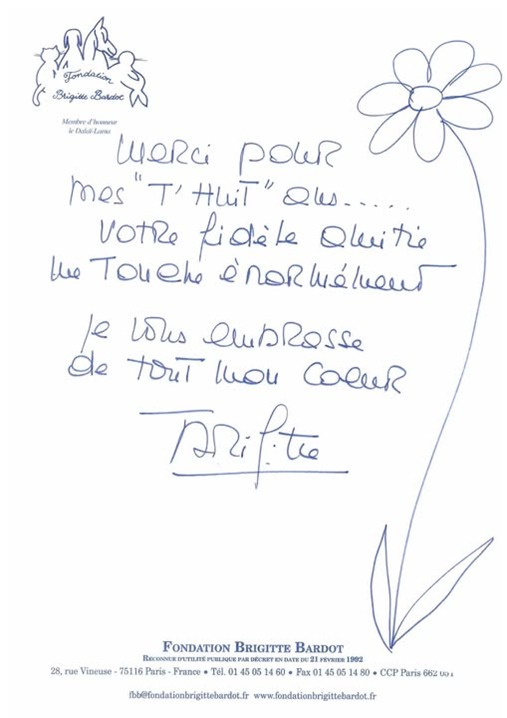 Fondation
Brigitte Bardot
Membre d'honneur
le Dalaï-Lama
Merci pour
mes "T'HUIT" ans.....
Votre fidèle amitié
me Touche énormément
je vous embrasse
de tout mon coeur
Brigitte
FONDATION BRIGITTE BARDOT
RECONNUE D'UTILITÉ PUBLIQUE PAR DÉCRET EN DATE DU 21 FÉVRIER 1992
28, rue Vineuse - 75116 Paris - France • Tél. 01 45 05 14 60 • Fax 01 45 05 14 80 • CCP Paris
fbb@fondationbrigittebardot.fr www.fondationbrigittebardot.fr